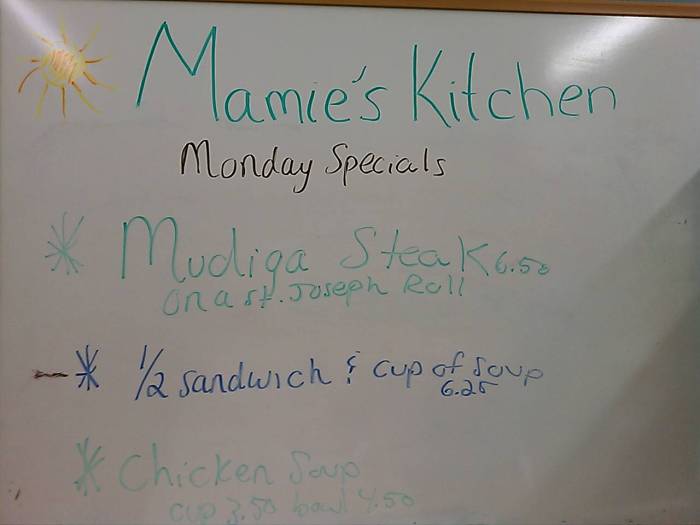 Mamie's Kitchen
Monday Specials
* Mudiga Steak 6.50
on a st. Joseph Roll
- * 1/2 sandwich & cup of soup
6.25
* Chicken Soup
cup 3.50 bowl 4.50